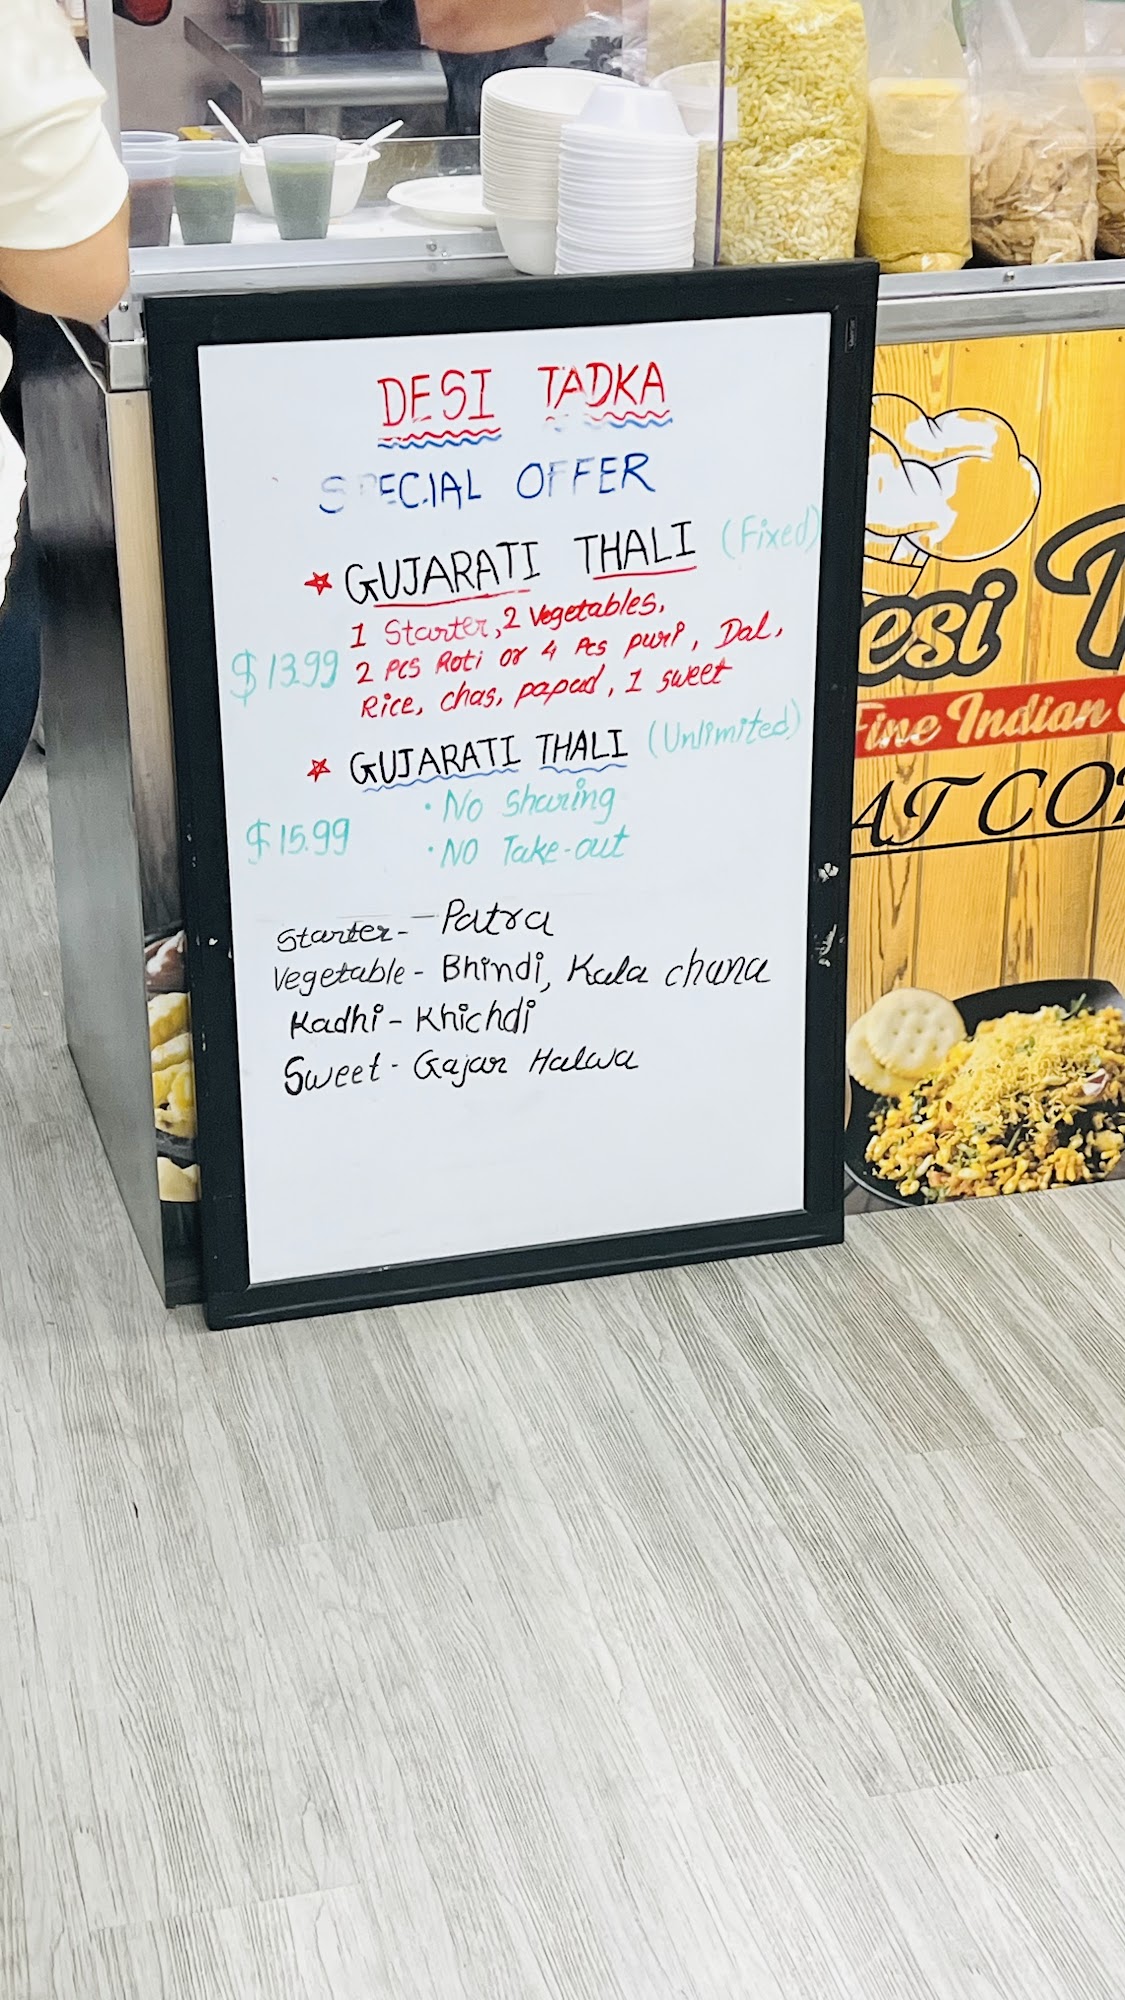 DESI TADKA
SPECIAL OFFER
GUJARATI THALI (Fixed)
1 Starter, 2 Vegetables,
$13.99 2 Pcs Roti or 4 Pcs puri, Dal,
Rice, chas, papad, 1 sweet
GUJARATI THALI (Unlimited)
• No Sharing
$15.99
• NO Take-out
Starter - Patra
Vegetable - Bhindi, Kala chana
Kadhi - Khichdi
Sweet - Gajar Halwa
esi T
Fine Indian
AT CO